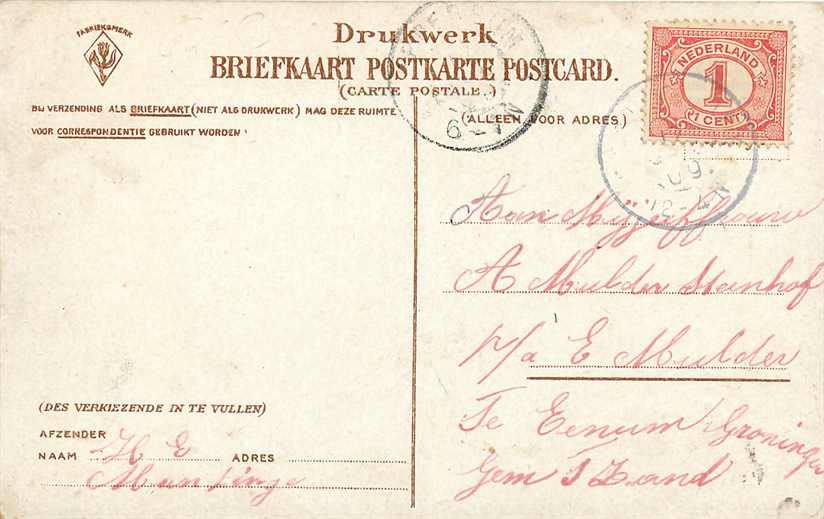 FABRIEKSMERK
Drukwerk
BRIEFKAART POSTKARTE POSTCARD.
(CARTE POSTALE.)
BIJ VERZENDING ALS BRIEFKAART (NIET ALS DRUKWERK) MAG DEZE RUIMTE
VOOR CORRESPONDENTIE GEBRUIKT WORDEN
(ALLEEN VOOR ADRES)
NEDERLAND
1
1 CENT
6-7N
09
12-4N
Aan Mejufvrouw
A Mulder Steenhof
p/a E Mulder
Te Eenum Groningen
Gem 't Zand
(DES VERKIEZENDE IN TE VULLEN)
AFZENDER
NAAM H E ADRES
Muntinga